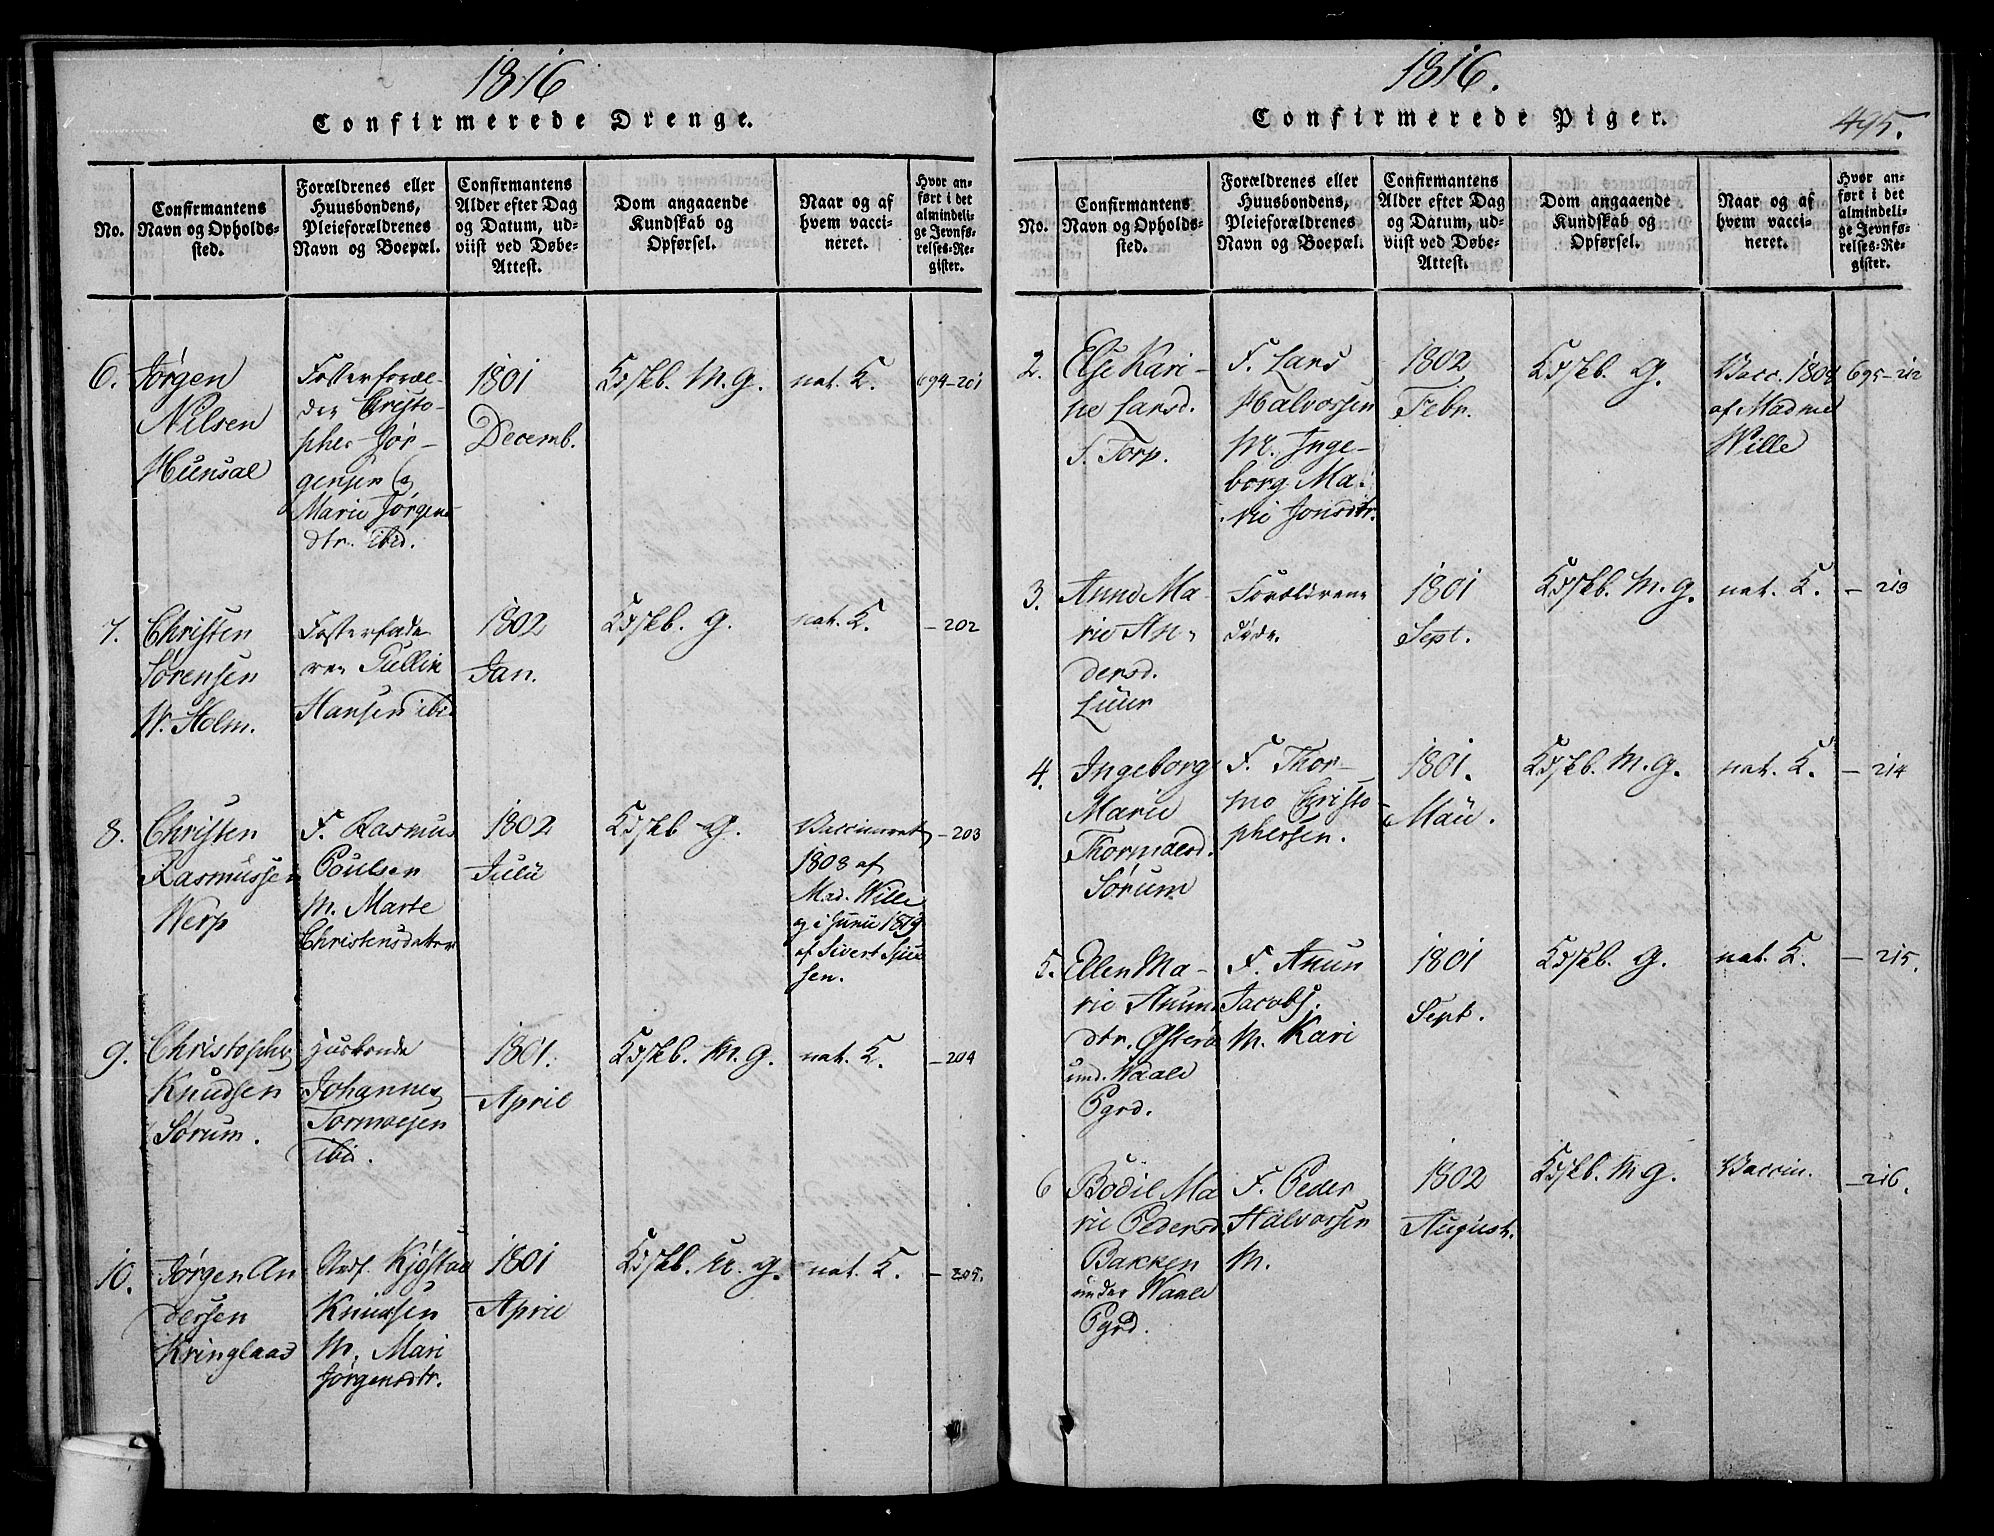 1816
Confirmerede Drenge.
No.
Confirmantens
Navn og Opholds-
sted.
Forældrenes eller
Huusbondens,
Pleieforældrenes
Navn og Boepæl.
Confirmantens
Alder efter Dag
og Datum, ud-
viist ved Døbe-
Attest.
Dom angaaende
Kundskab og
Opførsel.
Naar og af
hvem vacci-
neret.
Hvor an-
ført i det
almindeli-
ge Jevnfø-
relses-Re-
gister.
6.
Jørgen
Nilsen
Hunsal
Fosterforæl-
der Christo-
pher Jør-
gensen &
Marie Jørgens-
dtr. ibid.
1801
Decemb.
Kdskb. M. G.
nat. K.
694-201
7.
Christen
Sørensen
N. Holm.
Fosterfade-
ren Tullin
Hansen ibid
1802
Jan.
Kdskb. G.
nat. K.
- 202
8.
Christen
Rasmussen
Werp
F. Rasmus
Poulsen
M. Marte
Christensdatter
1802
Julii
Kdskb G.
Vaccineret
1808 af
Mad. Wille
og i Junii 1819
af Sivert
sen.
- 203
9.
Christopher
Knudsen
Sørum.
Husbonde
Johannes
Tormoesen
ibid.
1801.
April
Kdskb. M. G.
nat. K.
- 204
10.
Jørgen An
dersen
Kringlaas
Kjøstad
Knudsen
M. Mari
Jørgensdtr.
1801
April
Kdskb. M. G.
nat. K.
- 205.
1816.
Confirmerede Piger.
495.
No.
Confirmantens
Navn og Opholds-
sted.
Forældrenes eller
Huusbondens,
Pleieforældrenes
Navn og Boepæl.
Confirmantens
Alder efter Dag
og Datum, ud-
viist ved Døbe-
Attest.
Dom angaaende
Kundskab og
Opførsel.
Naar og af
hvem vacci-
neret.
Hvor an-
ført i det
almindeli-
ge Jevnfø-
relses-Re-
gister.
2.
Else Kari-
ne Larsd.
S. Torp.
F. Lars
Halvorsen
M. Inge-
borg Ma-
rie Jonsdtr.
1802
Febr.
Kdskb. G.
Vacc. 1804
af Madme
Wille
695-212
3.
Anne Ma-
rie An-
dersd.
Luur
Forældrene
døde.
1801
Sept.
Kdskb. M. G.
nat. K.
- 213
4.
Ingeborg
Marie
Thormoesd.
Sørum
F. Thor-
mo Christo-
phersen.
1801.
Maii.
Kdskb. M. G.
nat. K.
- 214
5.
Ellen Ma-
rie Anun-
dtr. Østerø
und. Waale
Pgrd.
F. Anun
Jacobs.
M. Kari
1801
Sept.
Kdskb. G.
nat. K.
- 215.
6
Bodil Ma
rie Pedersd.
Bakken
under Waale
Pgrd.
F. Peder
Halvorsen
M.
1802
August.
Kdskb. M G.
Vaccin.
- 216.